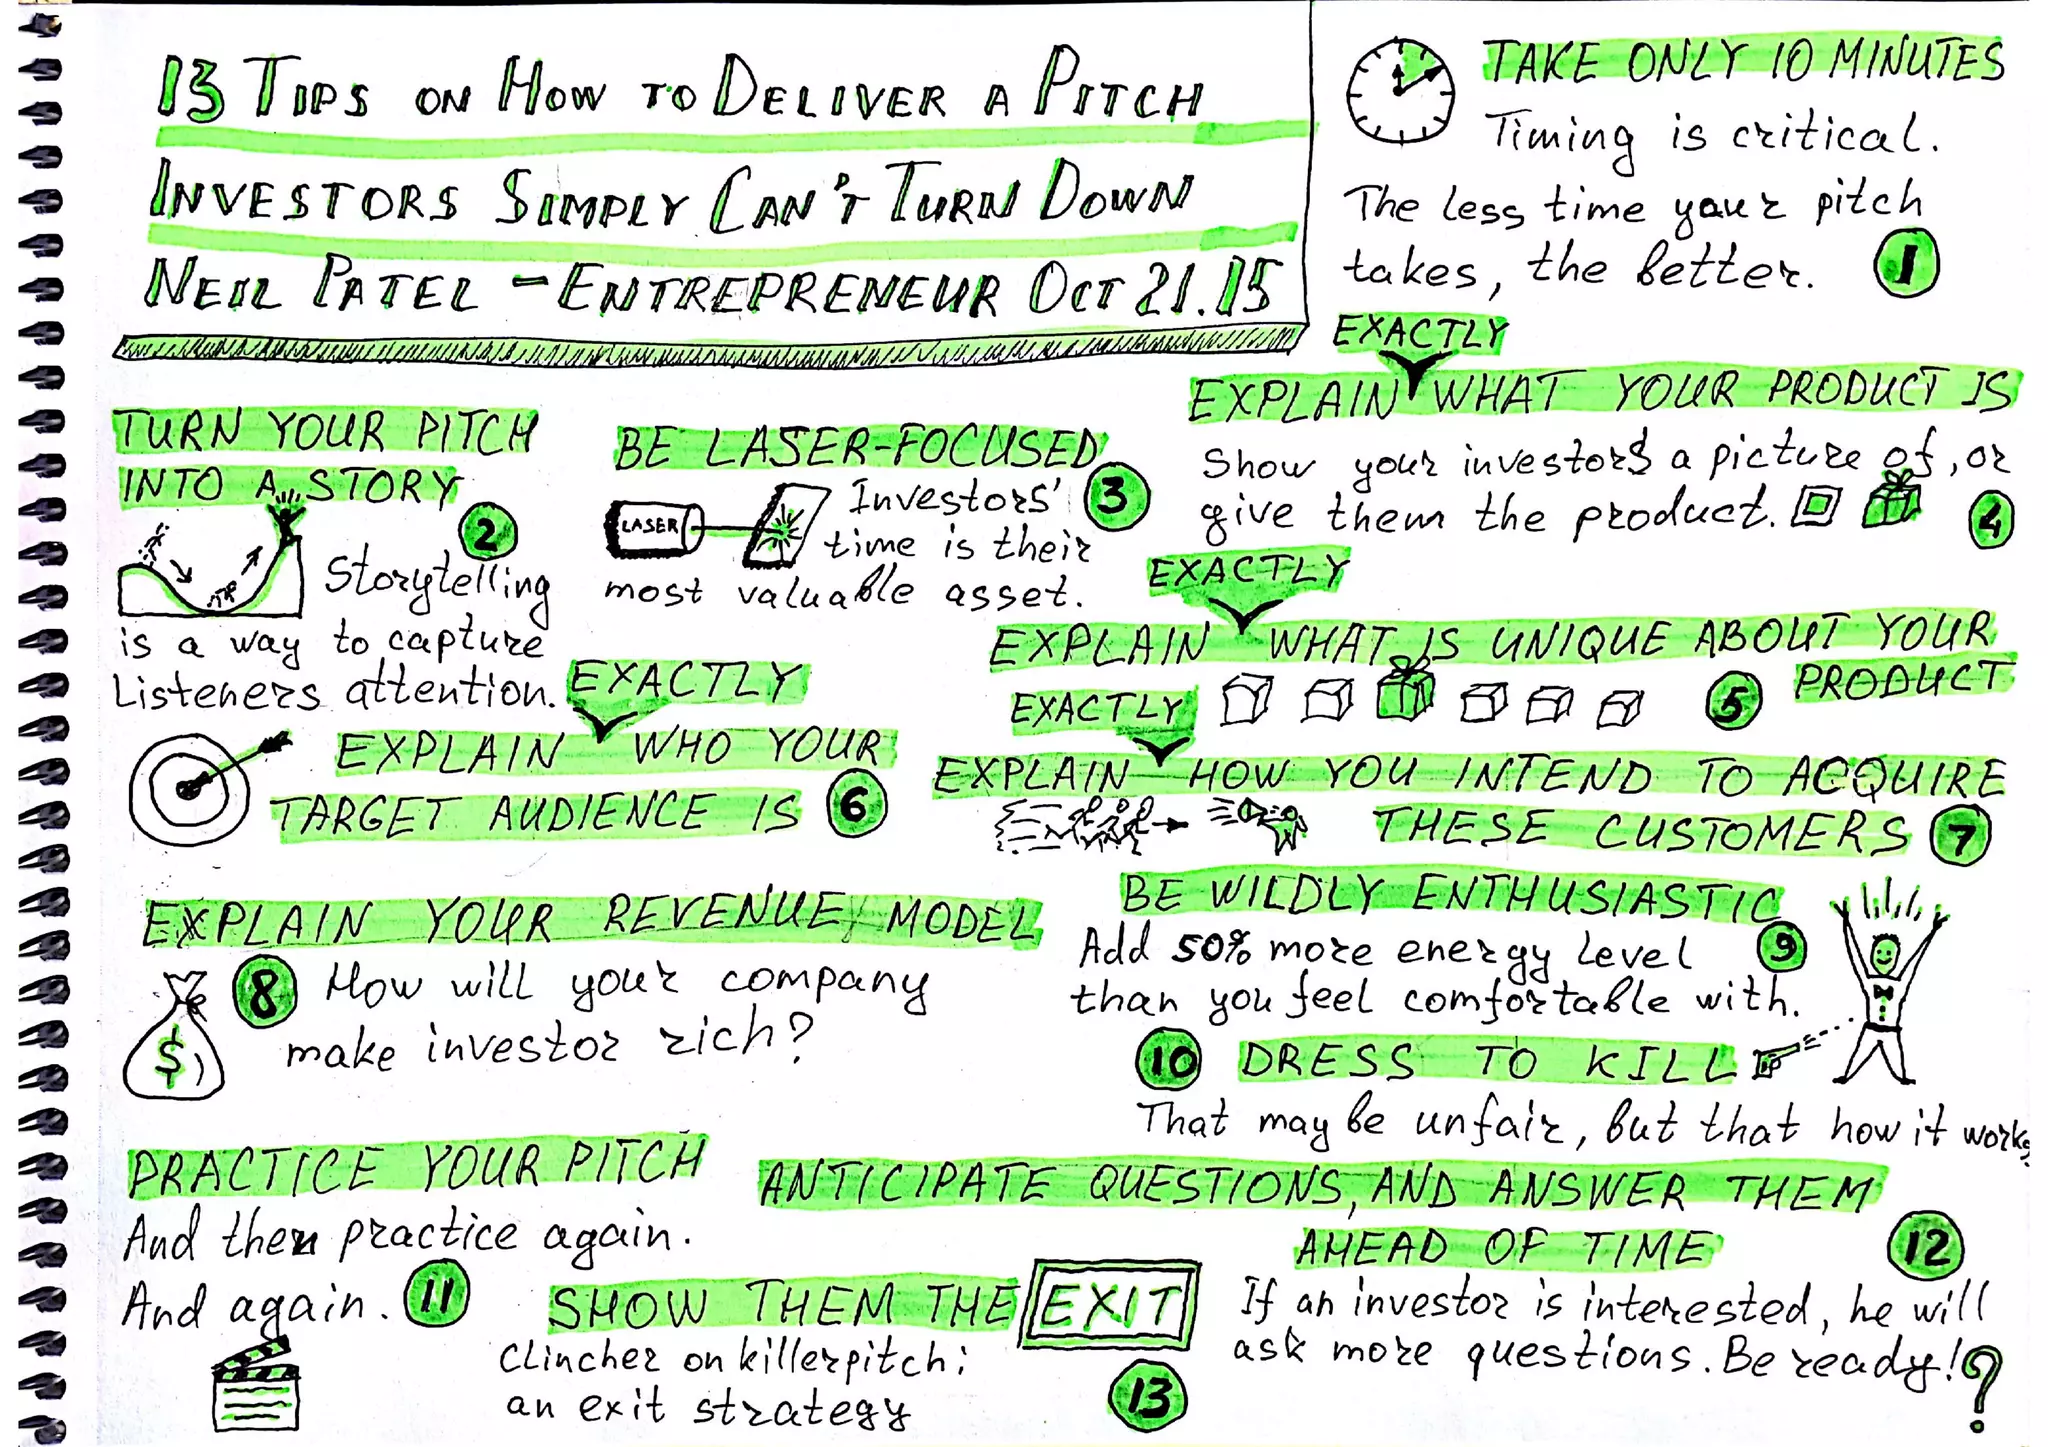 13 TIPS ON HOW TO DELIVER A PITCH
INVESTORS SIMPLY CAN'T TURN DOWN
NEIL PATEL - ENTREPRENEUR OCT 21.15
TAKE ONLY 10 MINUTES
Timing is critical.
The less time your pitch
takes, the better.
1
TURN YOUR PITCH
INTO A STORY
2
Storytelling
is a way to capture
Listeners attention.
BE LASER-FOCUSED
3
LASER
Investors'
time is their
most valuable asset.
EXACTLY
EXPLAIN WHAT YOUR PRODUCT IS
Show your investors a picture of, or
give them the product.
4
EXACTLY
EXPLAIN WHAT IS UNIQUE ABOUT YOUR
PRODUCT
5
EXACTLY
EXPLAIN WHO YOUR
TARGET AUDIENCE IS
6
EXACTLY
EXPLAIN HOW YOU INTEND TO ACQUIRE
THESE CUSTOMERS
7
EXPLAIN YOUR REVENUE MODEL
8
How will your company
make investor rich?
$
BE WILDLY ENTHUSIASTIC
9
Add 50% more energy level
than you feel comfortable with.
10
DRESS TO KILL
That may be unfair, but that how it works.
PRACTICE YOUR PITCH
And then practice again.
And again.
11
ANTICIPATE QUESTIONS, AND ANSWER THEM
AHEAD OF TIME
12
If an investor is interested, he will
ask more questions. Be ready!?
SHOW THEM THE EXIT
Clincher on killerpitch:
an exit strategy
13